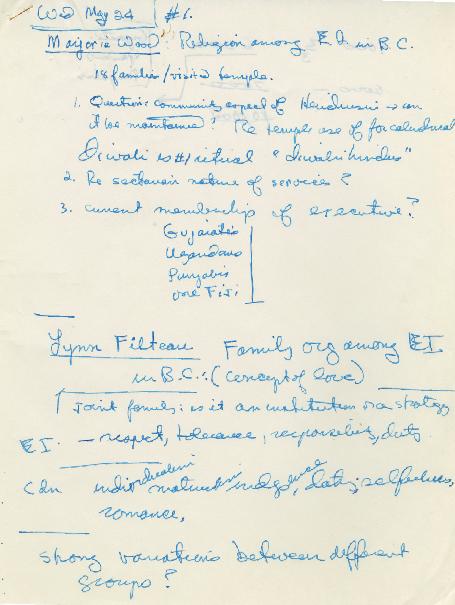 Wed May 24 #6.
Marjorie Wood: Religion among EI. in B.C.
18 families / visited temple.
1. Question: community aspect of Hinduism is can
it be maintained? Re temple use of for calendrical
Diwali is #1 ritual "diwali hindus"
2. Re sectarian nature of services?
3. current membership of executive?
Gujaratis
Ugandans
Punjabis
one Fiji
Lynn Filteau Family org among EI
in B.C.: (concept of love)
Joint family: is it an institution or a strategy
EI. - respect, tolerance, responsibility, duty
Cdn individualism maturation indep'ence, selfishness,
romance,
strong variations between different
groups?